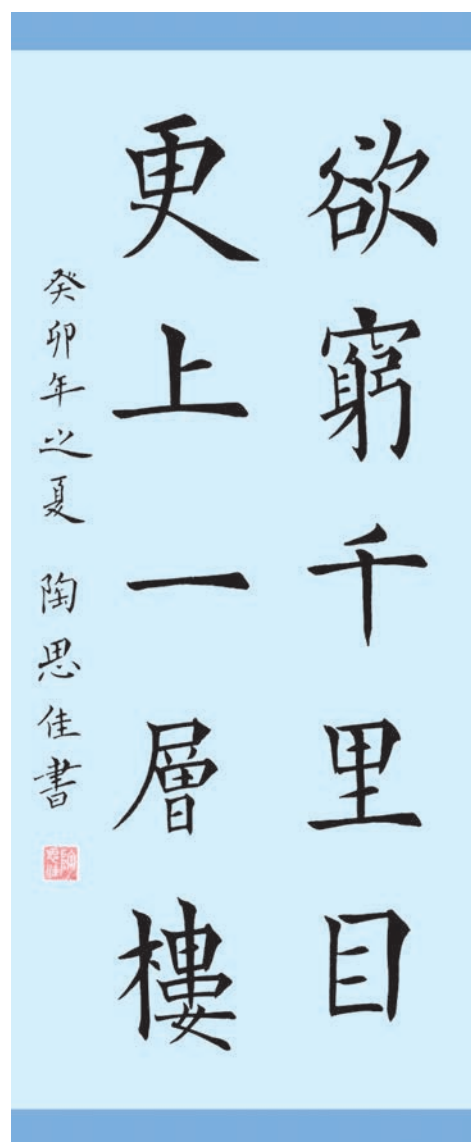 欲窮千里目
更上一層樓
癸卯年之夏 陶思佳書